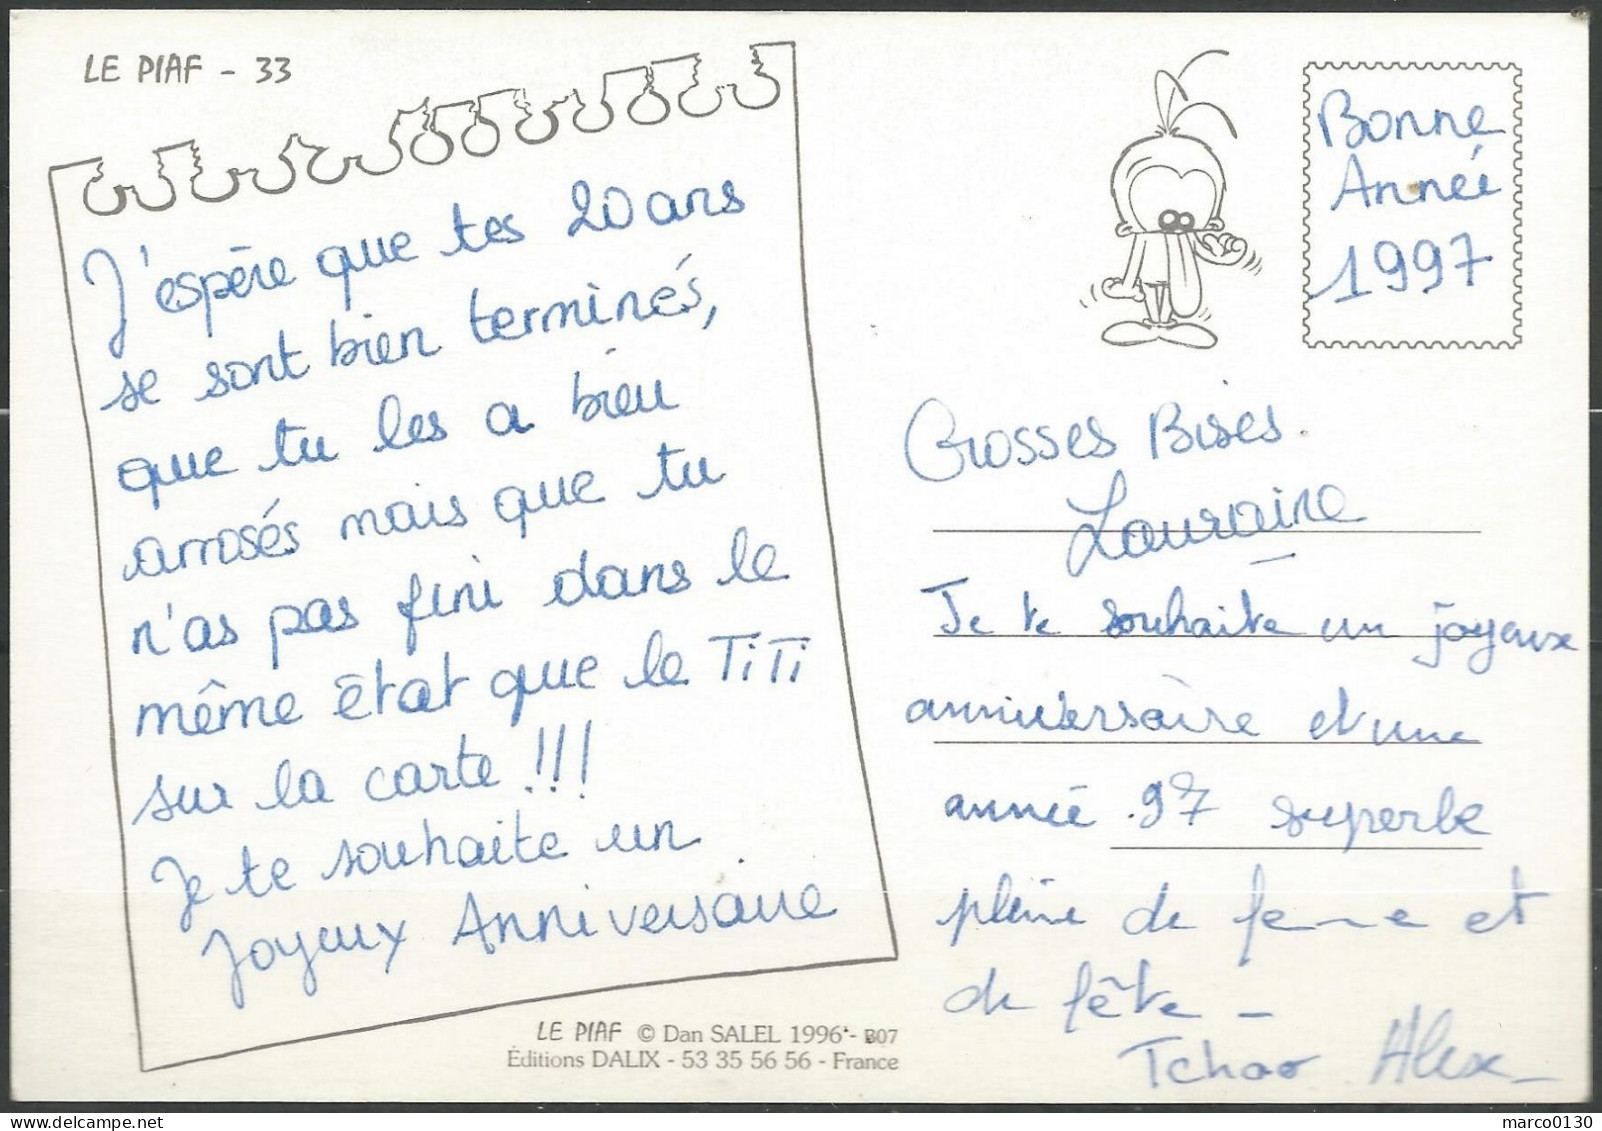 LE PIAF - 33
J'espère que tes 20 ans
se sont bien terminés,
que tu les a bieu
arrosés mais que tu
n'as pas fini dans le
même état que le TiTi
sur la carte !!!
Je te souhaite un
Joyeux Anniversaire
Bonne
Année
1997
Grosses Bises.
Lauraine
Je te souhaite un joyeux
anniversaire et une
année 97 superbe
pleine de et
de fête -
Tchao Alex
LE PIAF © Dan SALEL 1996 - B07
Éditions DALIX - 53 35 56 56 - France
marco0130